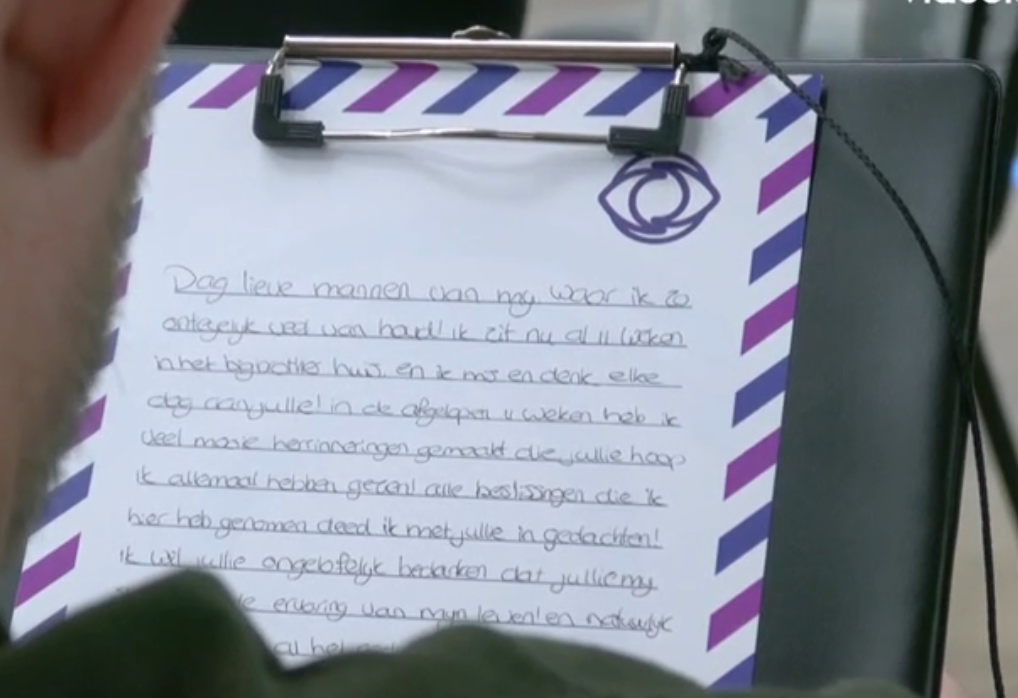 Dag lieve mannen van mij waar ik zo
ontegelijk veel van houd! ik zit nu al 11 weken
in het bigbrother huis. en ik mis en denk elke
dag aan jullie! in de afgelopen 11 weken heb ik
veel mooie herrinneringen gemaakt die jullie hoop
ik allemaal hebben gezien! alle beslissingen die ik
hier heb genomen deed ik met jullie in gedachten!
ik wil jullie ongelofelijk bedanken dat jullie mij
ervaring van mijn leven! en natuurlijk
al het